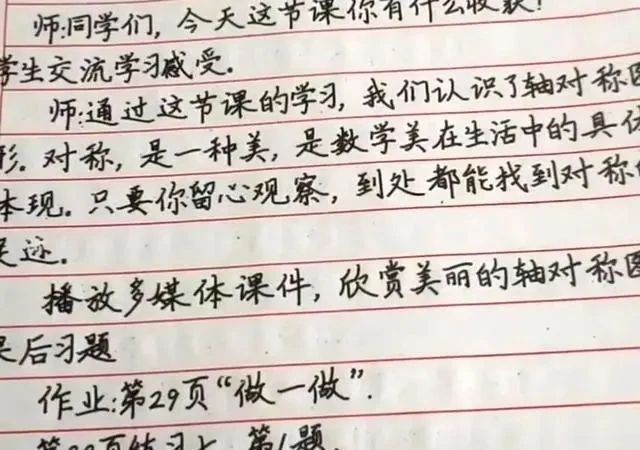 师:同学们,今天这节课你有什么收获?
学生交流学习感受.
师:通过这节课的学习,我们认识了轴对称图
形.对称,是一种美,是数学美在生活中的具体
体现.只要你留心观察,到处都能找到对称的
足迹.
播放多媒体课件,欣赏美丽的轴对称图
课后习题
作业:第29页“做一做”.
第 页练习 第1题.